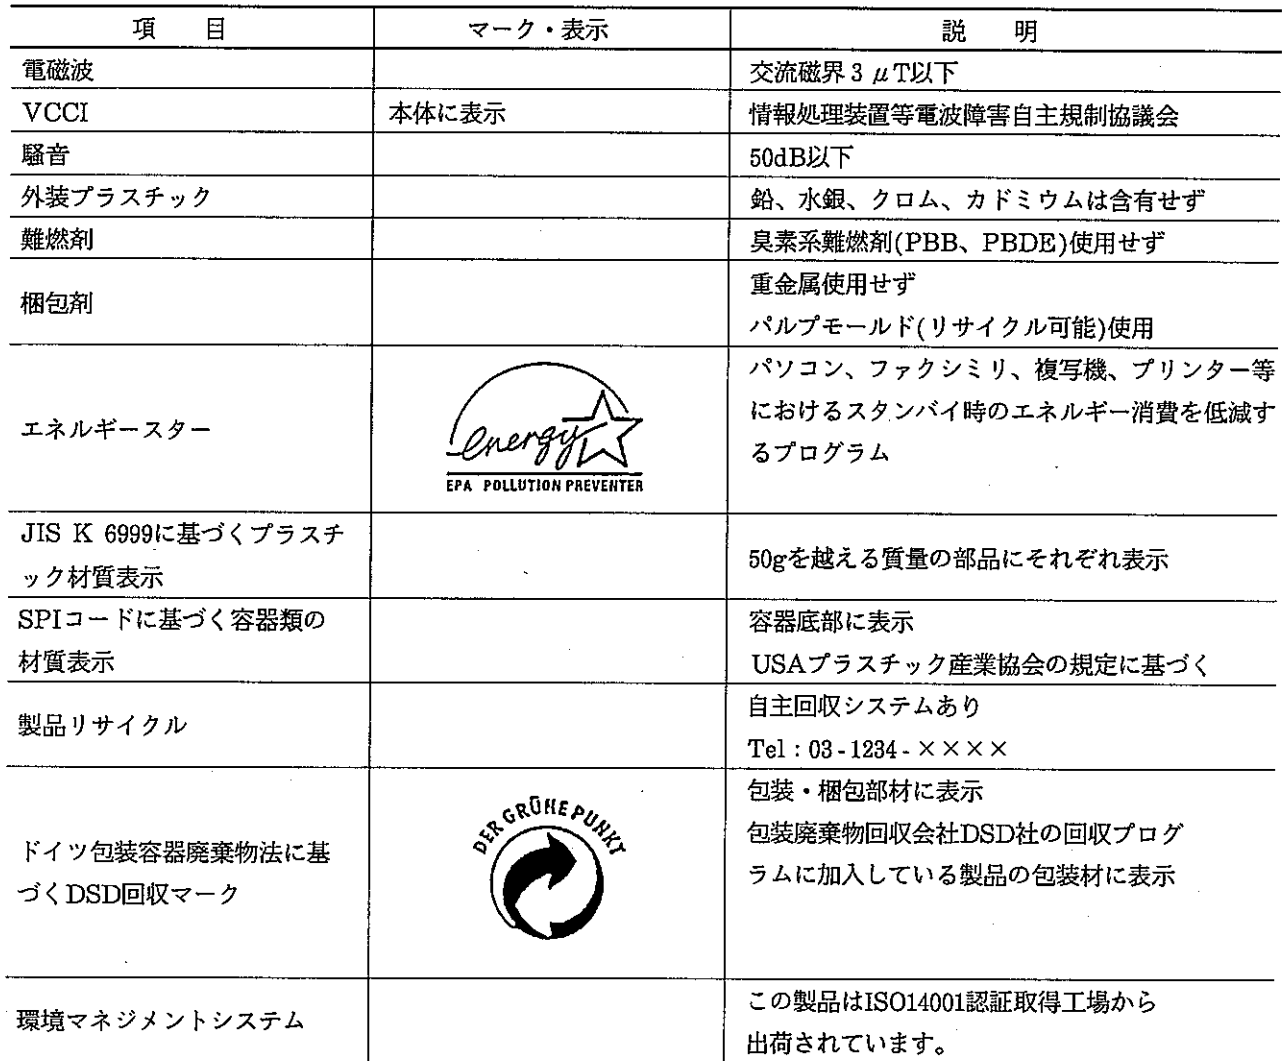 項　目　マーク・表示　説　明
電磁波　交流磁界3 μT以下
VCCI　本体に表示　情報処理装置等電波障害自主規制協議会
騒音　50dB以下
外装プラスチック　鉛、水銀、クロム、カドミウムは含有せず
難燃剤　臭素系難燃剤(PBB、PBDE)使用せず
梱包剤
重金属使用せず
パルプモールド(リサイクル可能)使用
エネルギースター
energy
EPA POLLUTION PREVENTER
パソコン、ファクシミリ、複写機、プリンター等
におけるスタンバイ時のエネルギー消費を低減す
るプログラム
JIS K 6999に基づくプラスチ
ック材質表示
50gを越える質量の部品にそれぞれ表示
SPIコードに基づく容器類の
材質表示
容器底部に表示
USAプラスチック産業協会の規定に基づく
製品リサイクル
自主回収システムあり
Tel：03-1234-××××
ドイツ包装容器廃棄物法に基
づくDSD回収マーク
DER GRÜNE PUNKT
包装・梱包部材に表示
包装廃棄物回収会社DSD社の回収プログ
ラムに加入している製品の包装材に表示
環境マネジメントシステム
この製品はISO14001認証取得工場から
出荷されています。